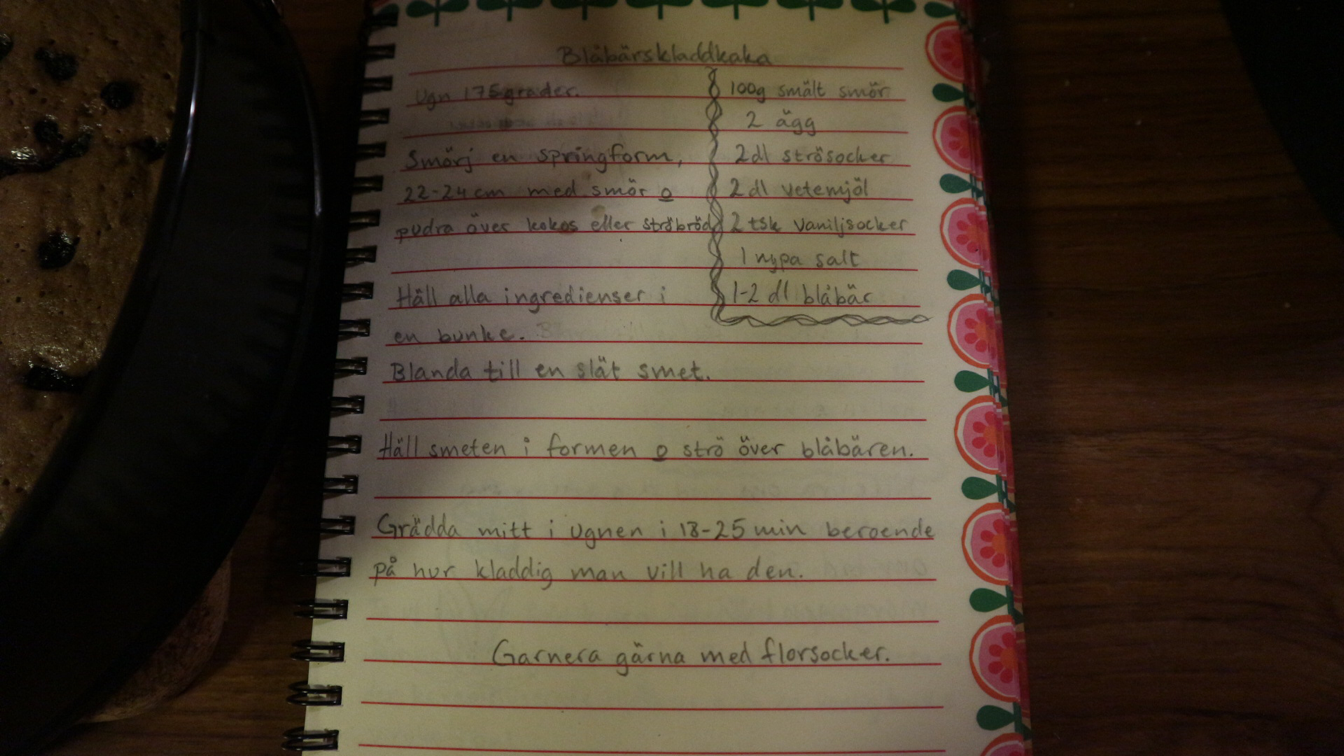 Blåbärskladdkaka
Ugn 175 grader.
Smörj en springform,
22-24 cm med smör o
pudra över kokos eller ströbröd
Häll alla ingredienser i
en bunke.
Blanda till en slät smet.
100g smält smör
2 ägg
2dl strösocker
2 dl vetemjöl
2 tsk vaniljsocker
1 nypa salt
1-2 dl blåbär
Häll smeten i formen o strö över blåbären.
Grädda mitt i ugnen i 18-25 min beroende
på hur kladdig man vill ha den.
Garnera gärna med florsocker.